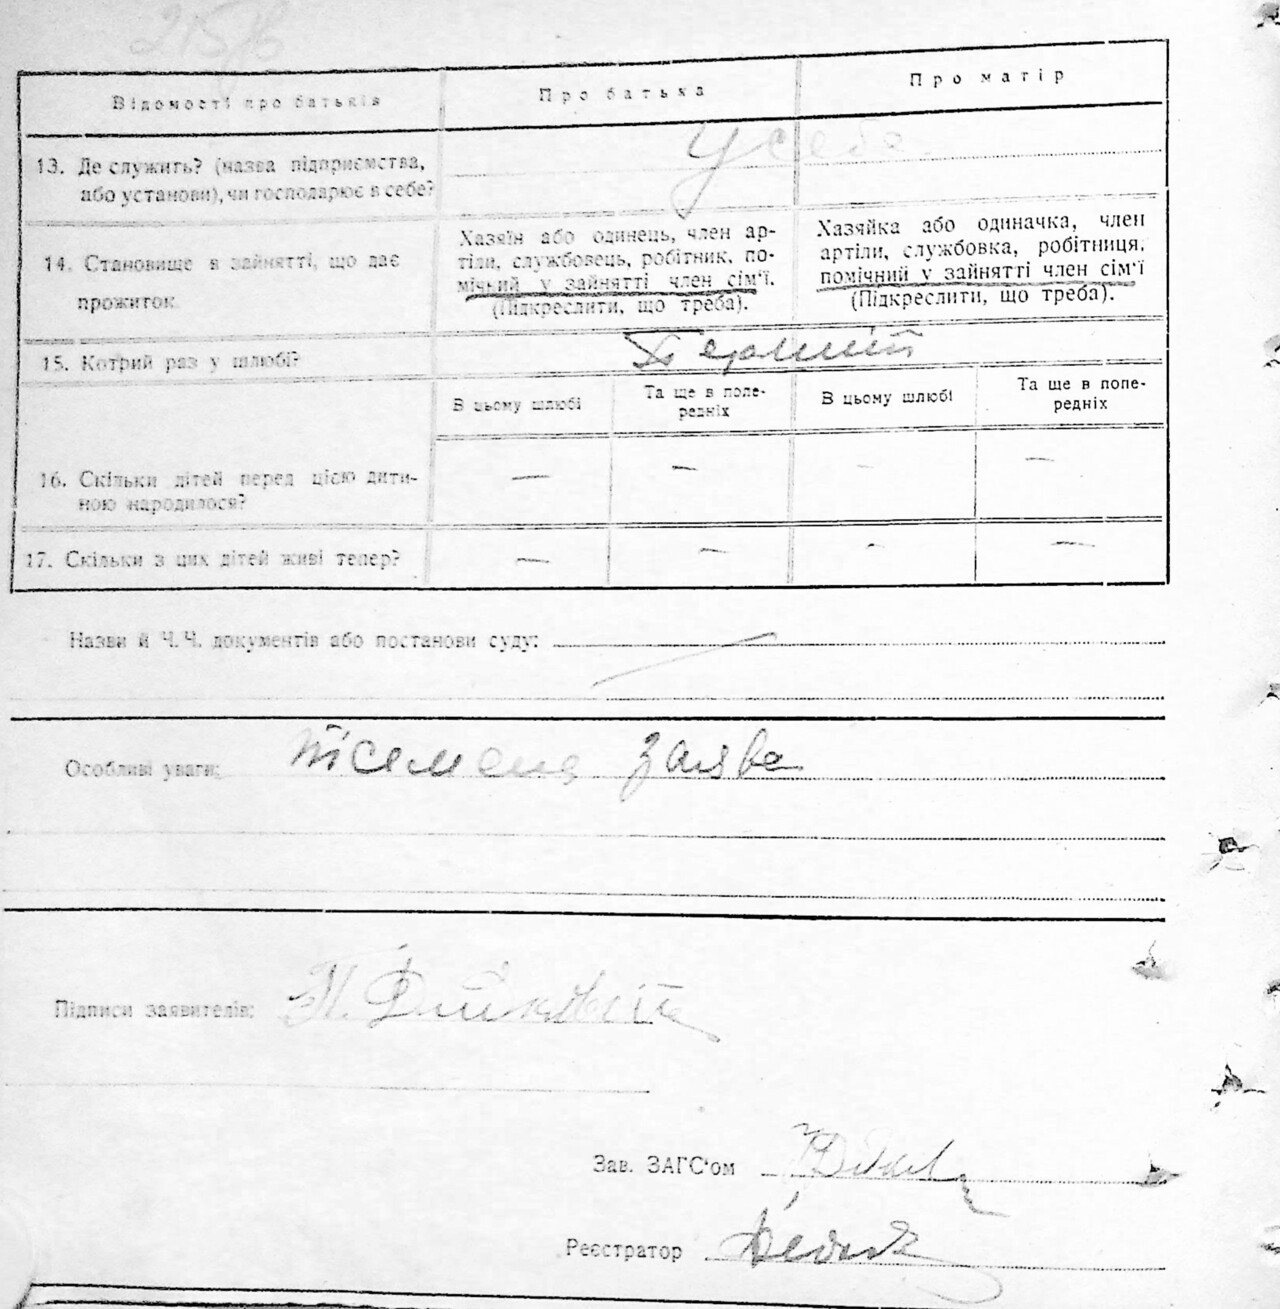 Відомості про батьків
Про батька
Про матір
13. Де служить? (назва підприємства,
або установи), чи господарює в себе?
У себе
14. Становище в зайнятті, що дає
прожиток
Хазяїн або одинець, член ар-
тілі, службовець, робітник, по-
мічний у зайнятті член сім'ї.
(Підкреслити, що треба).
Хазяйка або одиначка, член
артіли, службовка, робітниця,
помічний у зайнятті член сім'ї
(Підкреслити, що треба).
15. Котрий раз у шлюбі?
Перший
В цьому шлюбі
Та ще в попе-
редніх
В цьому шлюбі
Та ще в попе-
редніх
16. Скільки дітей перед цією дити-
ною народилося?
— — — —
17. Скільки з цих дітей живі тепер?
— — — —
Назви й Ч.Ч. документів або постанови суду:
Особливі уваги: пісмена заява
Підписи заявителів:
Зав. ЗАГС'ом
Реєстратор